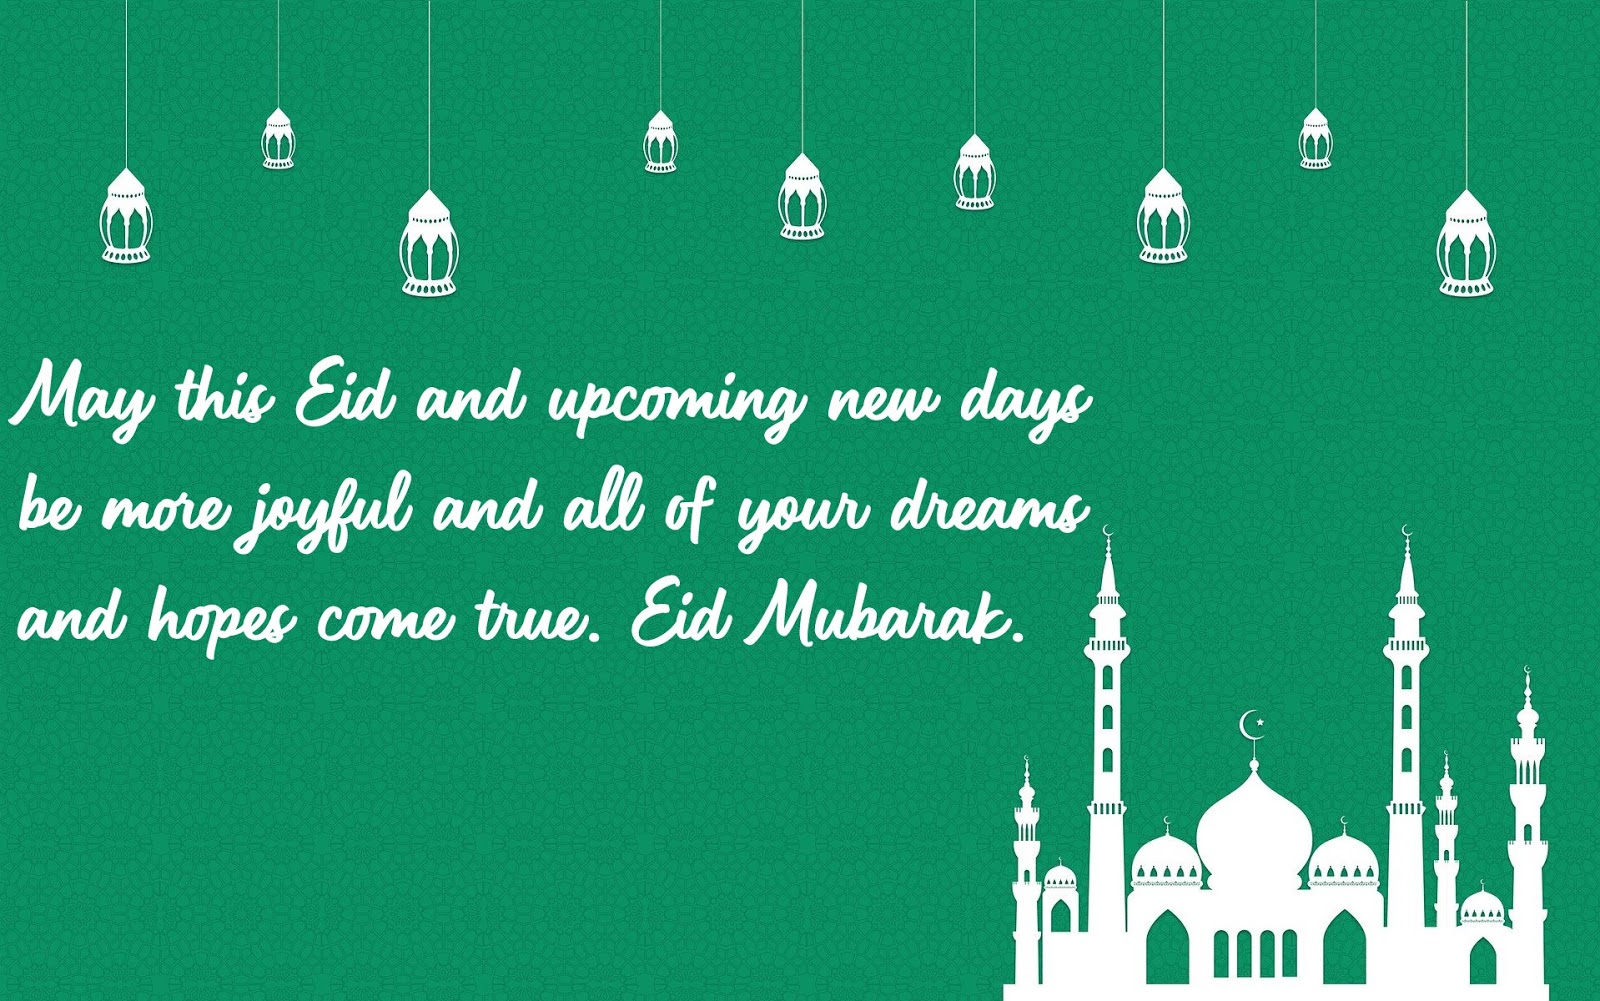 May this Eid and upcoming new days
be more joyful and all of your dreams
and hopes come true. Eid Mubarak.